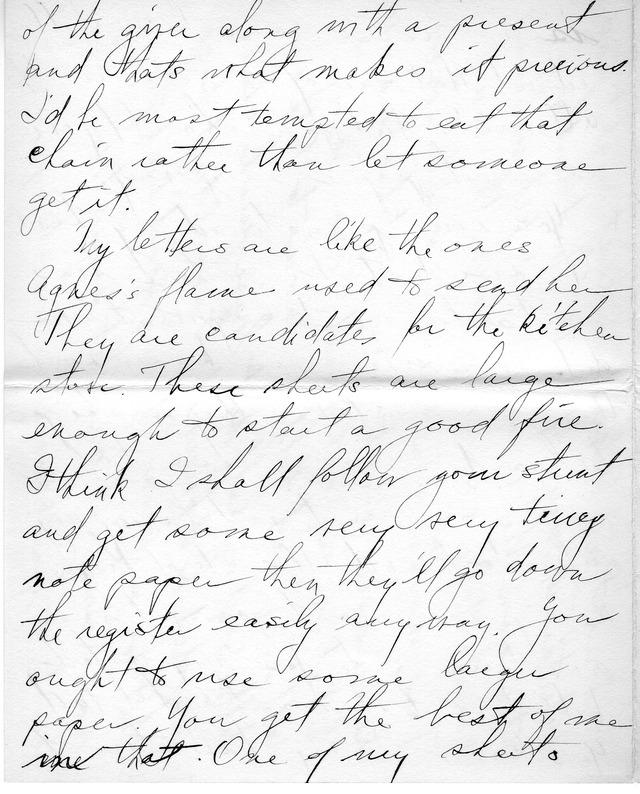 of the giver along with a present
and thats what makes it precious.
I'd be most tempted to eat that
chain rather than let someone
get it.
My letters are like the ones
Agnes's flame used to send her
They are candidates for the kitchen
stove. These sheets are large
enough to start a good fire.
I think I shall follow your stunt
and get some very very tiney
note paper then they'll go down
the register easily anyway. You
ought to use some larger
paper. You get the best of me
in that. One of my sheets